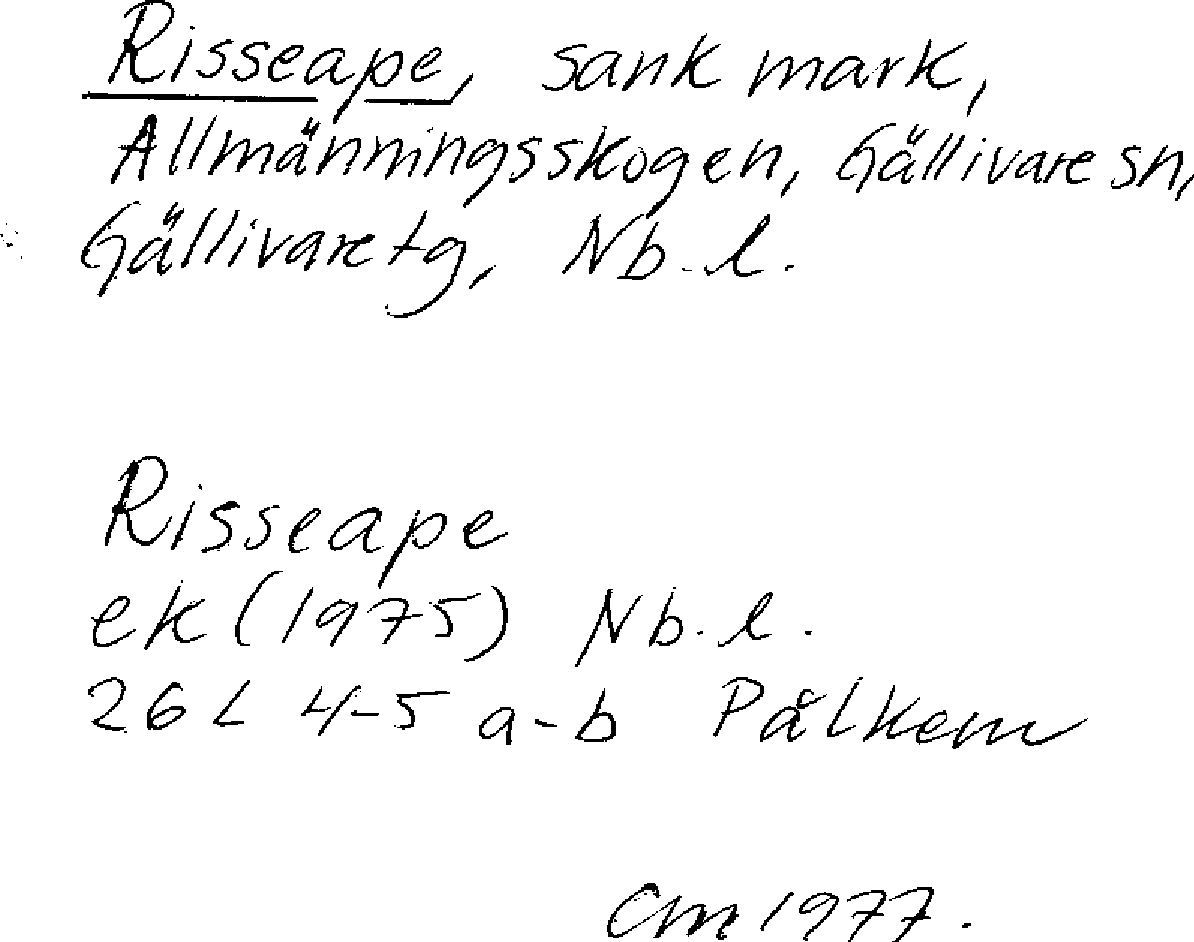 Risseape, sank mark,
Allmänningsskogen, Gällivare sn,
Gällivare tg, Nb. l.
Risseape
ek (1975) Nb. l.
26 L 4-5 a-b Pålkem
Cm 1977.